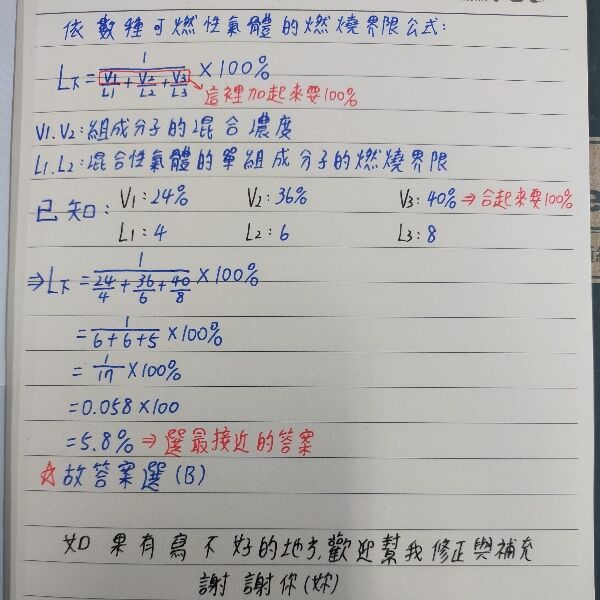 依數種可燃性氣體的燃燒界限公式:
L下=1/(V1/L1+V2/L2+V3/L3)×100%
這裡加起來要100%
V1.V2:組成分子的混合濃度
L1.L2:混合性氣體的單組成分子的燃燒界限
已知: V1:24% V2:36% V3:40%⇒合起來要100%
L1:4 L2:6 L3:8
⇒L下=1/(24/4+36/6+40/8)×100%
=1/(6+6+5)×100%
=1/17×100%
=0.058×100
=5.8%⇒選最接近的答案
☆故答案選(B)
如果有寫不好的地方,歡迎幫我修正與補充
謝謝你(妳)